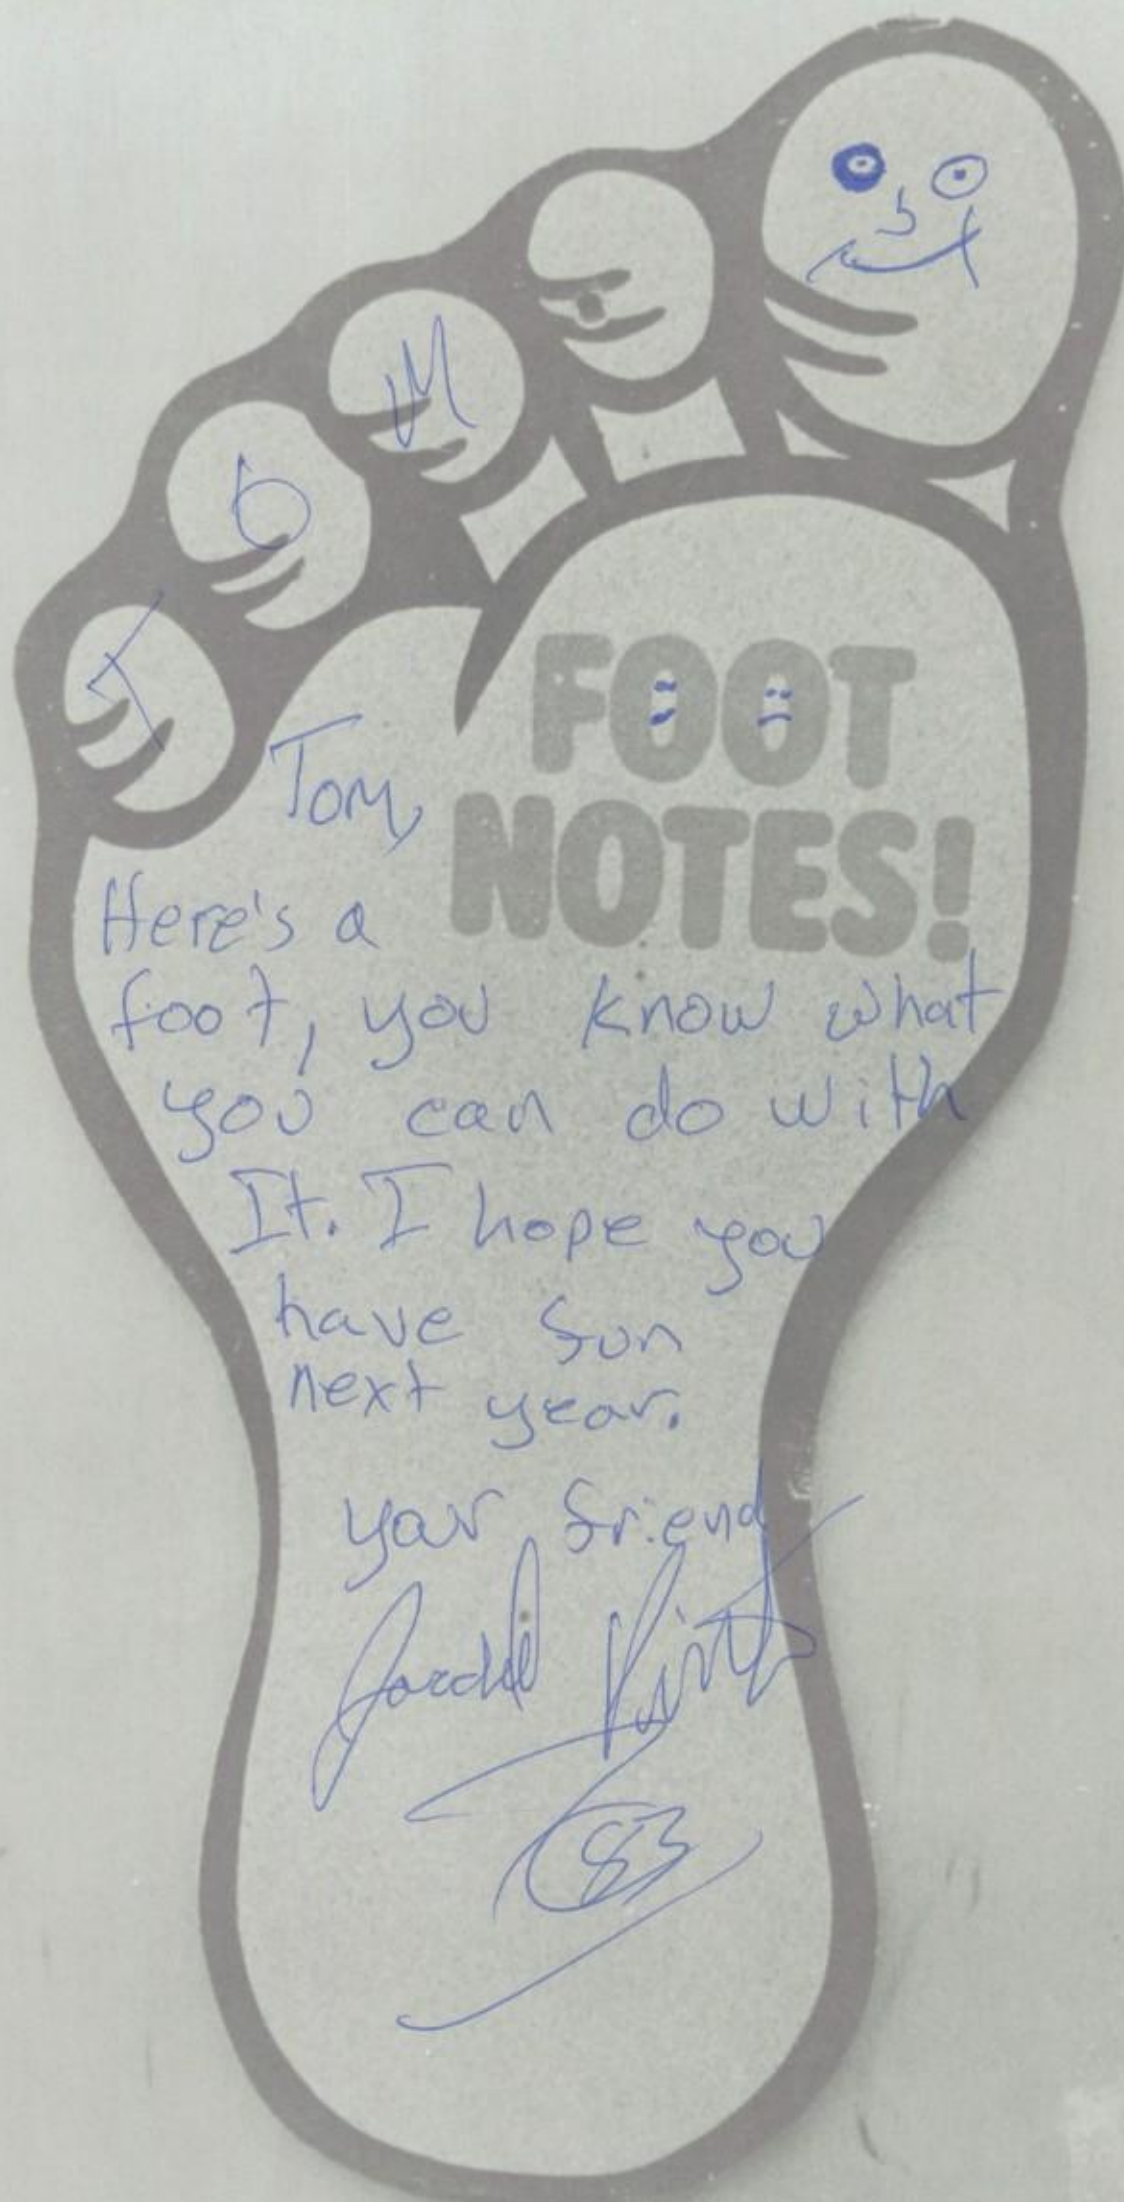 T O M
FOOT
NOTES!
Tom,
Here's a
foot, you know what
you can do with
It. I hope you
have fun
next year.
your friend
83